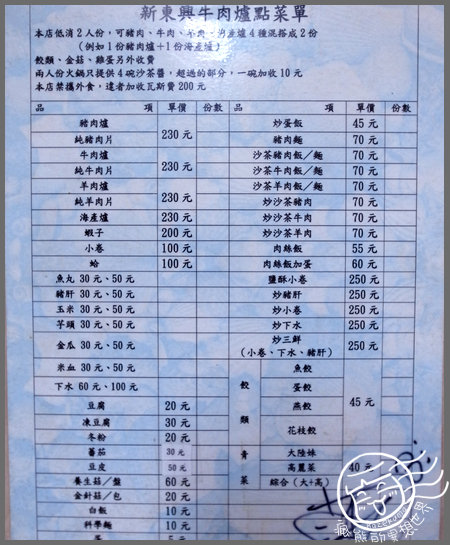 新東興牛肉爐點菜單
本店低消2人份,可豬肉、牛肉、羊肉、海產爐4種混搭成2份
(例如1份豬肉爐+1份海產爐)
餃類、金菇、雞蛋另外收費
兩人份火鍋只提供4碗沙茶醬,超過的部分,一碗加收10元
本店禁攜外食,違者加收瓦斯費200元
品 項 單價 份數
豬肉爐
純豬肉片
230元
牛肉爐
純牛肉片
230元
羊肉爐
純羊肉片
230元
海產爐 230元
蝦子 200元
小卷 100元
蛤 100元
魚丸 30元、50元
豬肝 30元、50元
玉米 30元、50元
芋頭 30元、50元
金瓜 30元、50元
米血 30元、50元
下水 60元、100元
豆腐 20元
凍豆腐 30元
冬粉 20元
蕃茄 30元
豆皮 50元
養生菇/盤 60元
金針菇/包 20元
白飯 10元
科學麵 10元
蛋 5元
品 項 單價 份數
炒蛋飯 45元
豬肉麵 70元
沙茶豬肉飯/麵 70元
沙茶牛肉飯/麵 70元
沙茶羊肉飯/麵 70元
炒沙茶豬肉 70元
炒沙茶牛肉 70元
炒沙茶羊肉 70元
肉絲飯 55元
肉絲飯加蛋 60元
鹽酥小卷 250元
炒豬肝 250元
炒小卷 250元
炒下水 250元
炒三鮮
(小卷、下水、豬肝) 250元
餃類
魚餃
蛋餃
燕餃
花枝餃
45元
青菜
大陸妹
高麗菜
綜合(大+高)
40元
瘋熊的異想世界